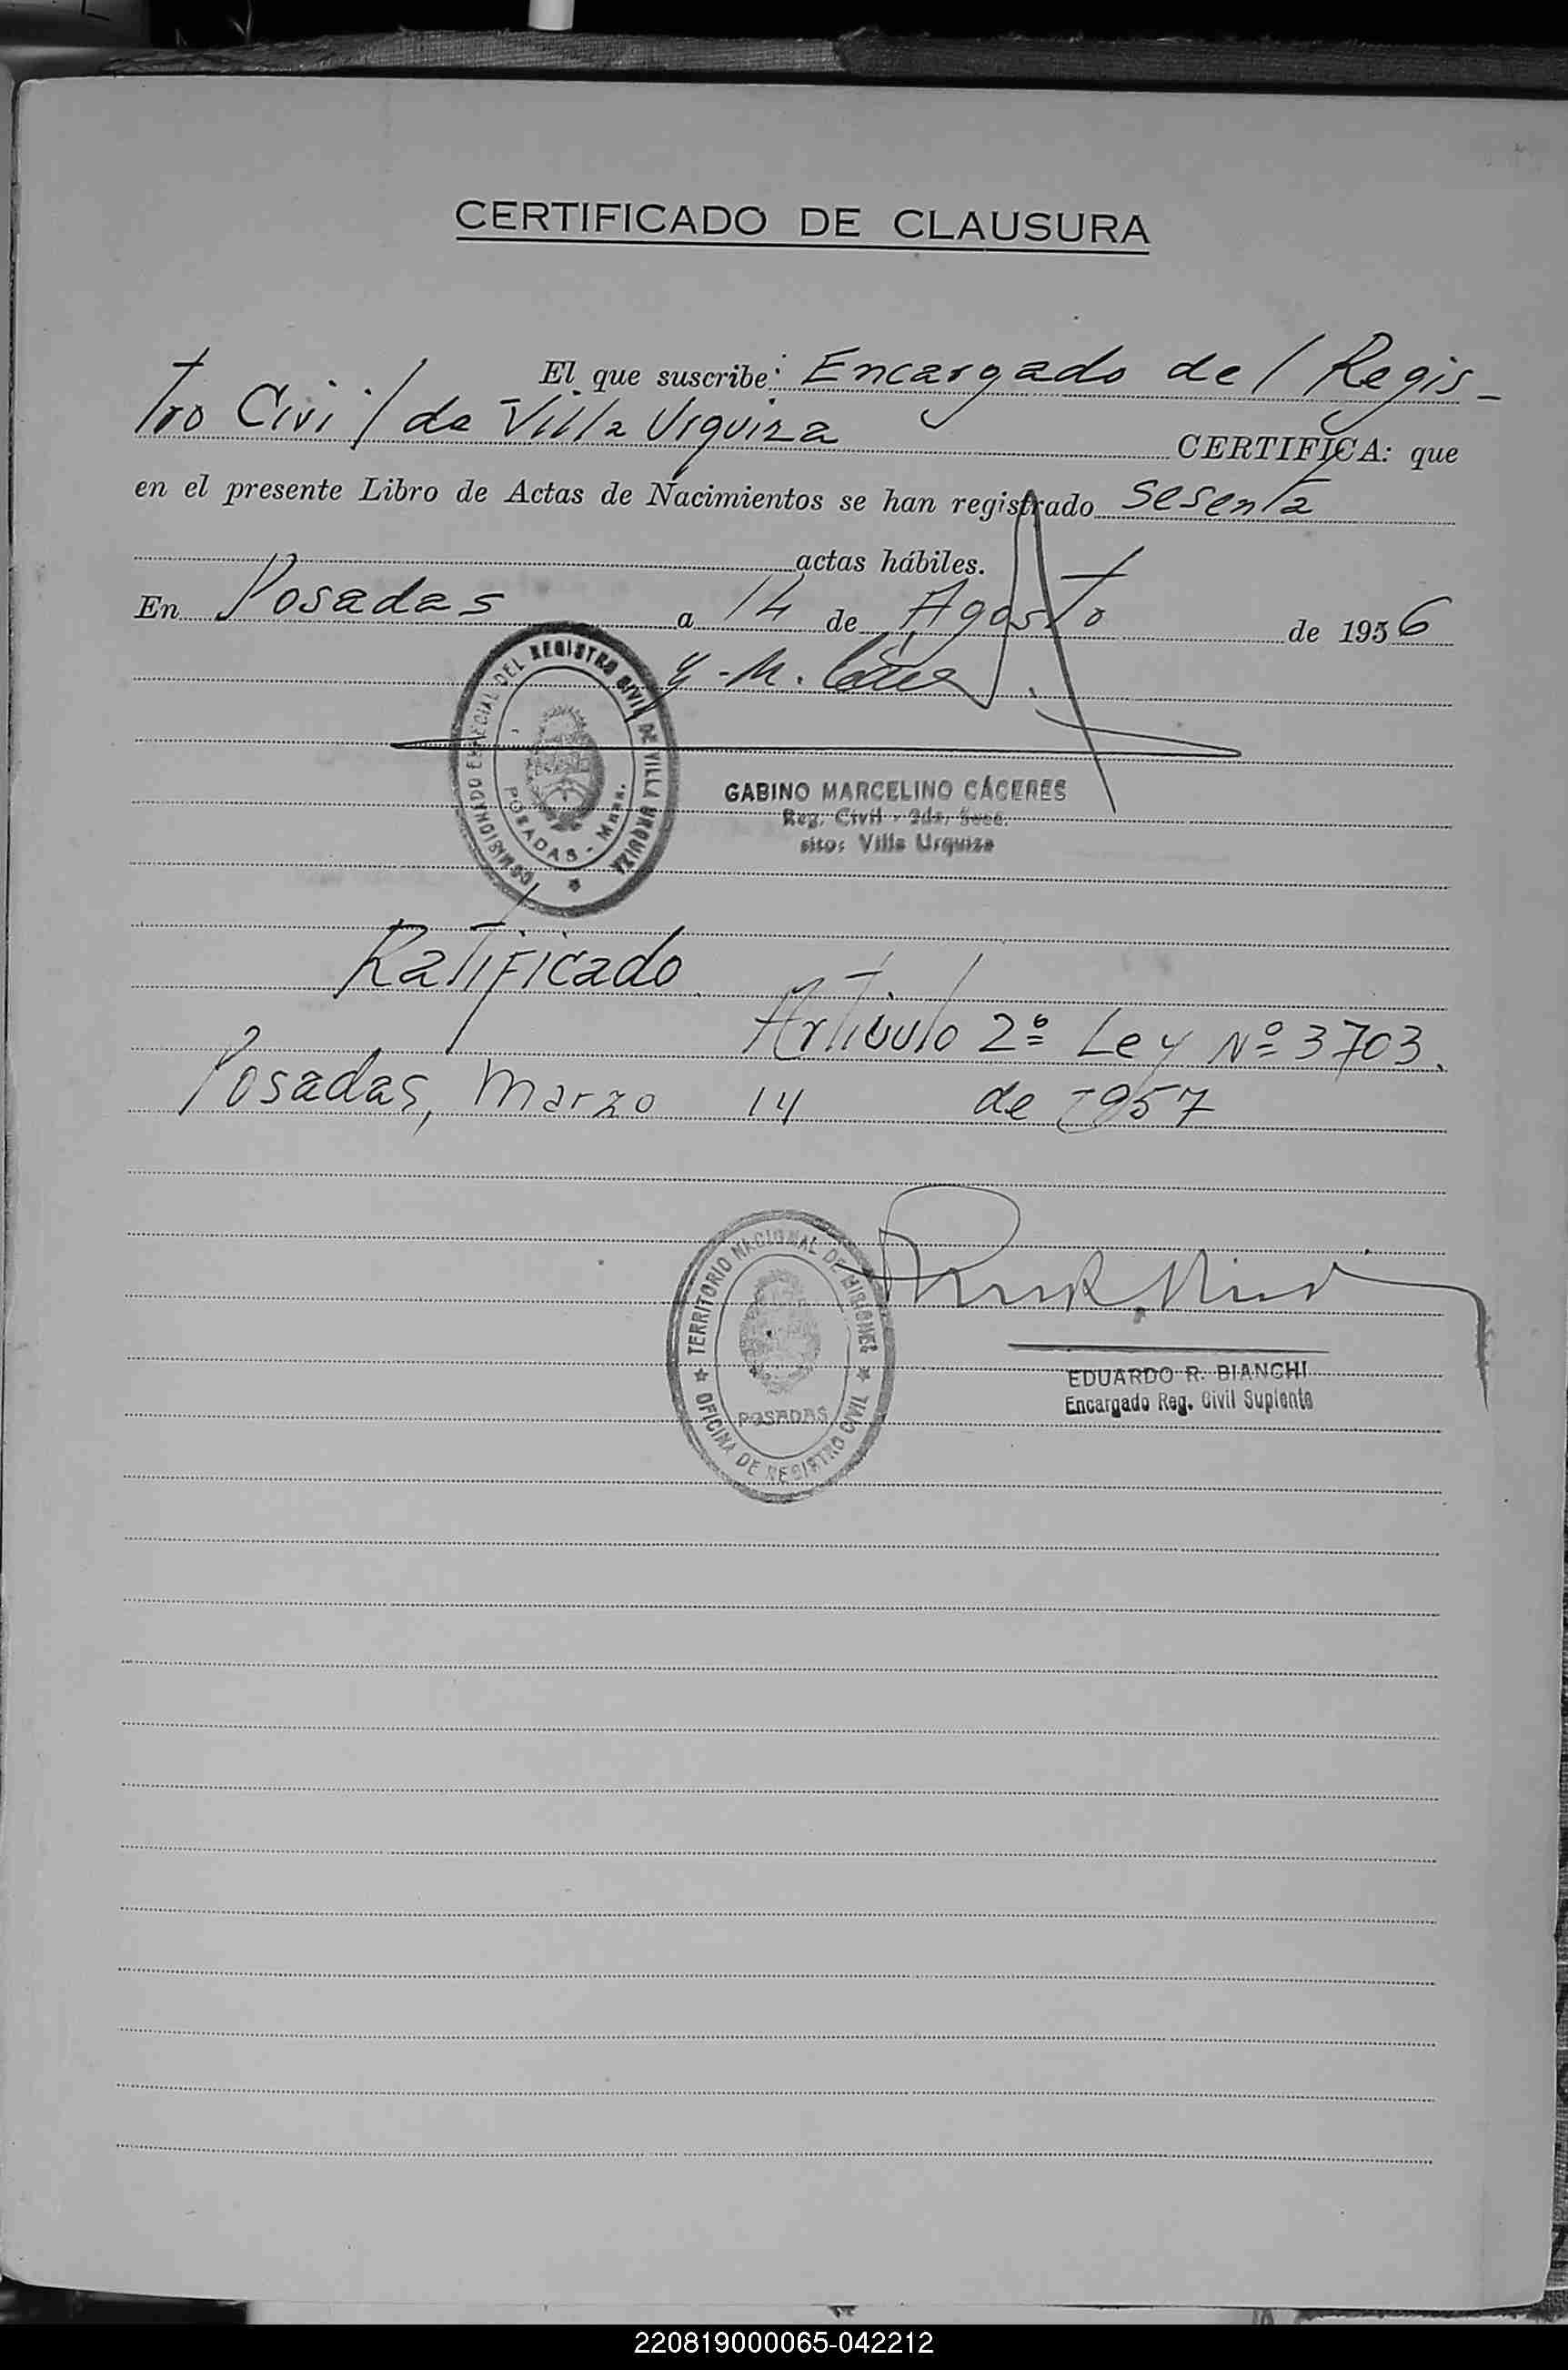 CERTIFICADO DE CLAUSURA
El que suscribe: Encargado del Regis-
tro Civil de Villa Urquiza CERTIFICA: que
en el presente Libro de Actas de Nacimientos se han registrado Sesenta
actas hábiles.
En Posadas a 14 de Agosto de 1956
COMISIONADO ESPECIAL DEL REGISTRO CIVIL DE VILLA URQUIZA
POSADAS - Mnes.
GABINO MARCELINO CÁCERES
Reg. Civil - 2da. Secc.
sito: Villa Urquiza
Ratificado
Artículo 2º Ley Nº 3703.
Posadas, Marzo 14 de 1957
TERRITORIO NACIONAL DE MISIONES
POSADAS
OFICINA DE REGISTRO CIVIL
EDUARDO R. BIANCHI
Encargado Reg. Civil Suplente
220819000065-042212